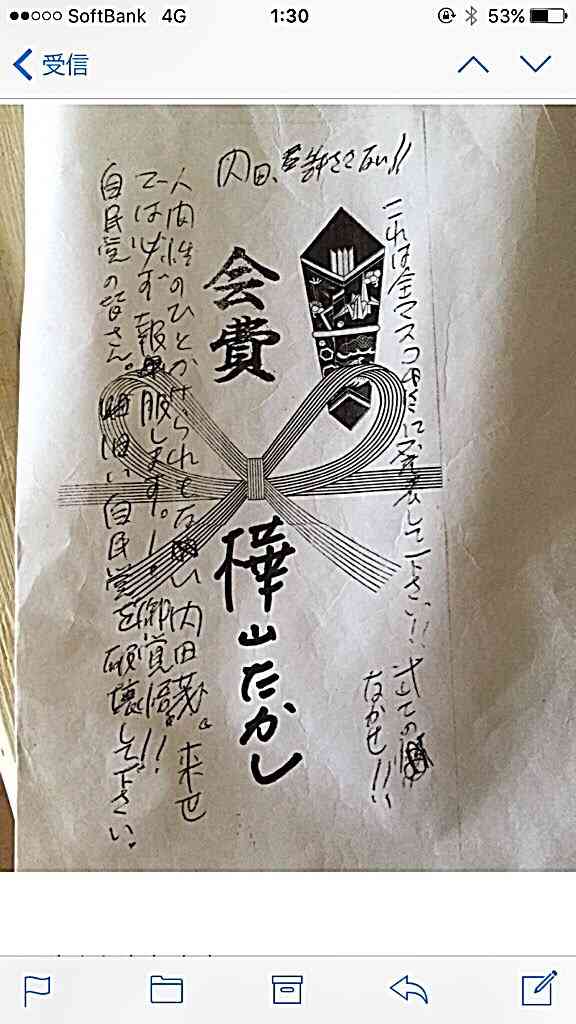 SoftBank 4G 1:30 53%
受信
内田、許さない!!
これは全マスコミに発表して下さい!!
なかせ!!
会費
樺山たかし
人間性のひとかけらもない内田茂。来世
では必ず報服します。御覚悟!!
自民党の皆さん。旧い自民党を破壊して下さい。